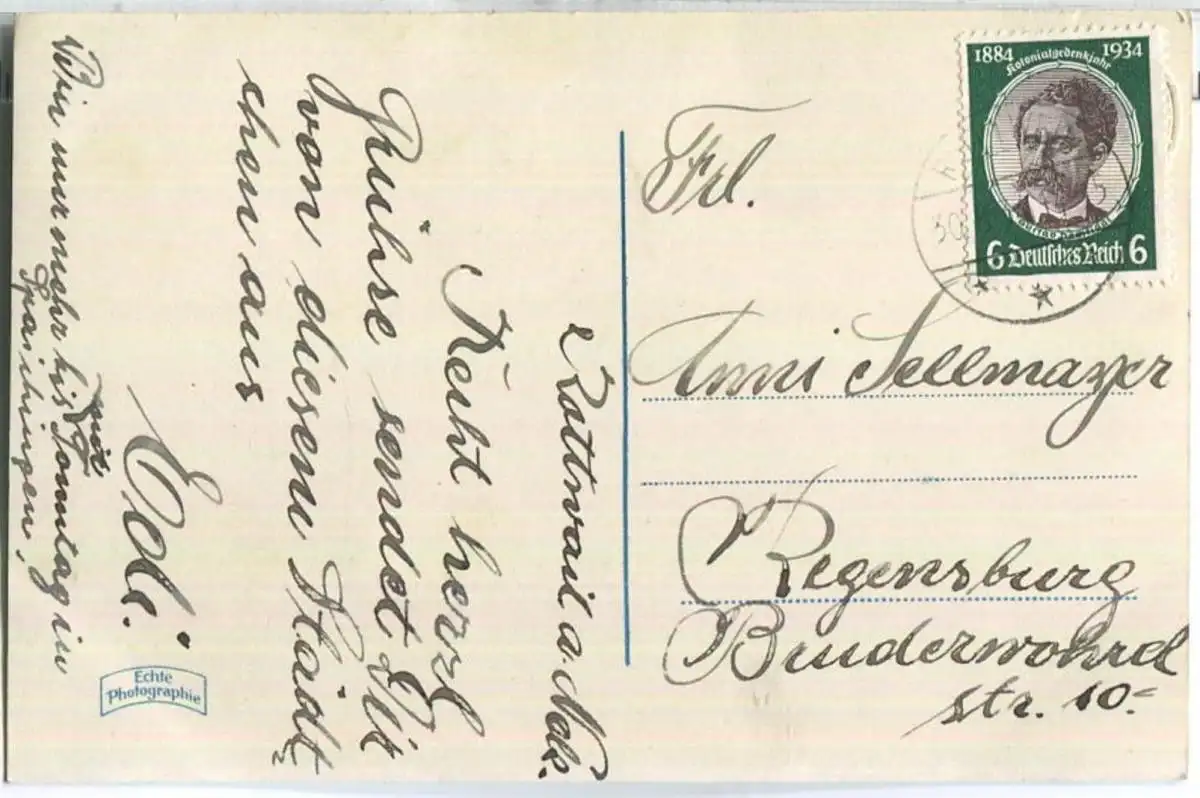 Rottweil a. Neck.
Recht herzl
Grühse sendet Dir
von diesem Städt
chen aus
Edi.
Wir nurmehr bis Sonntag in
mit
Spaichingen.
Echte
Photographie
1884 1934
Kolonialgedenkjahr
6 Deutsches Reich 6
30
Frl.
Anni Sellmayer
Regensburg
Bruderwöhrd
str. 10.=